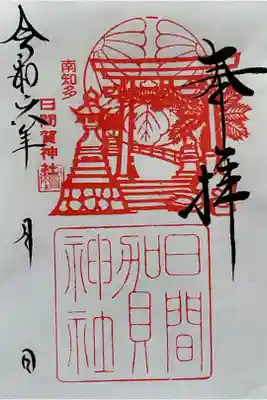 奉拝
南知多
日間賀神社
日間
加貝
神社
令和六年 月 日